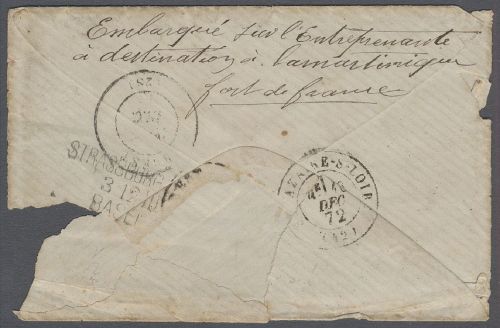 Embarqué sur l'Entreprenante
à destination à lamartinique
fort de france
DEC
STRASSBURG
3 12
BASEL
S-LOIR
DEC
72